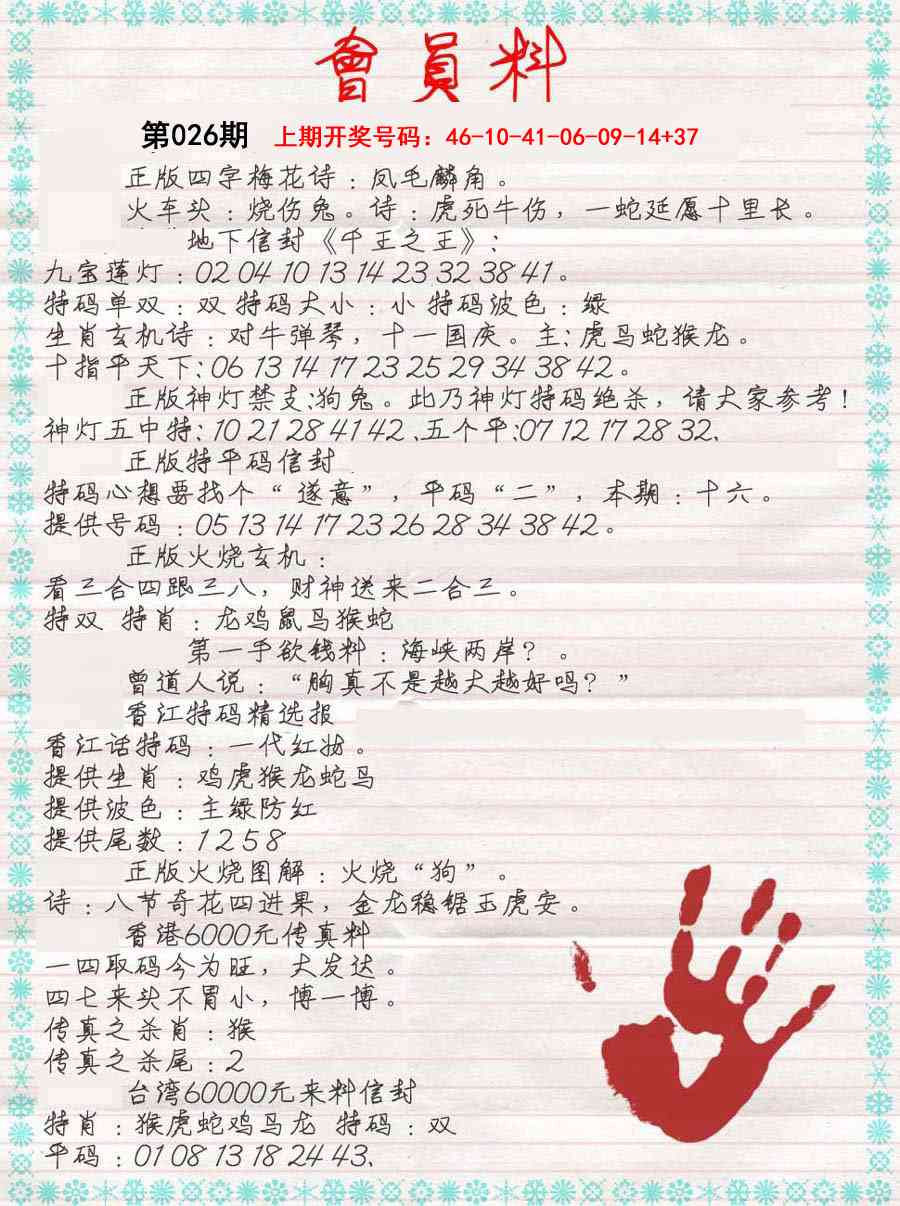 會員料
第026期 上期开奖号码：46-10-41-06-09-14+37
正版四字梅花诗：凤毛麟角。
火车头：烧伤兔。诗：虎死牛伤，一蛇延愿十里长。
地下信封《千王之王》：
九宝莲灯：02 04 10 13 14 23 32 38 41。
特码单双：双 特码大小：小 特码波色：绿
生肖玄机诗：对牛弹琴，十一国庆。主：虎鸟蛇猴龙。
十指平天下：06 13 14 17 23 25 29 34 38 42。
正版神灯禁支：狗兔。此乃神灯特码绝杀，请大家参考！
神灯五中特：10 21 28 41 42、五个平：07 12 17 28 32、
正版特平码信封
特码心想要找个“遂意”，平码“二”，本期：十六。
提供号码：05 13 14 17 23 26 28 34 38 42。
正版火烧玄机：
看三合四跟三八，财神送来二合三。
特双 特肖：龙鸡鼠马猴蛇
第一手欲钱料：海峡两岸？。
曾道人说：“胸真不是越大越好吗？”
香江特码精选报
香江话特码：一代红妆。
提供生肖：鸡虎猴龙蛇马
提供波色：主绿防红
提供尾数：1 2 5 8
正版火烧图解：火烧“狗”。
诗：八节奇花四进果，金龙稳锯玉虎安。
香港6000元传真料
一四取码今为旺，大发达。
四七来头不胃小，博一博。
传真之杀肖：猴
传真之杀尾：2
台湾60000元来料信封
特肖：猴虎蛇鸡马龙 特码：双
平码：01 08 13 18 24 43、